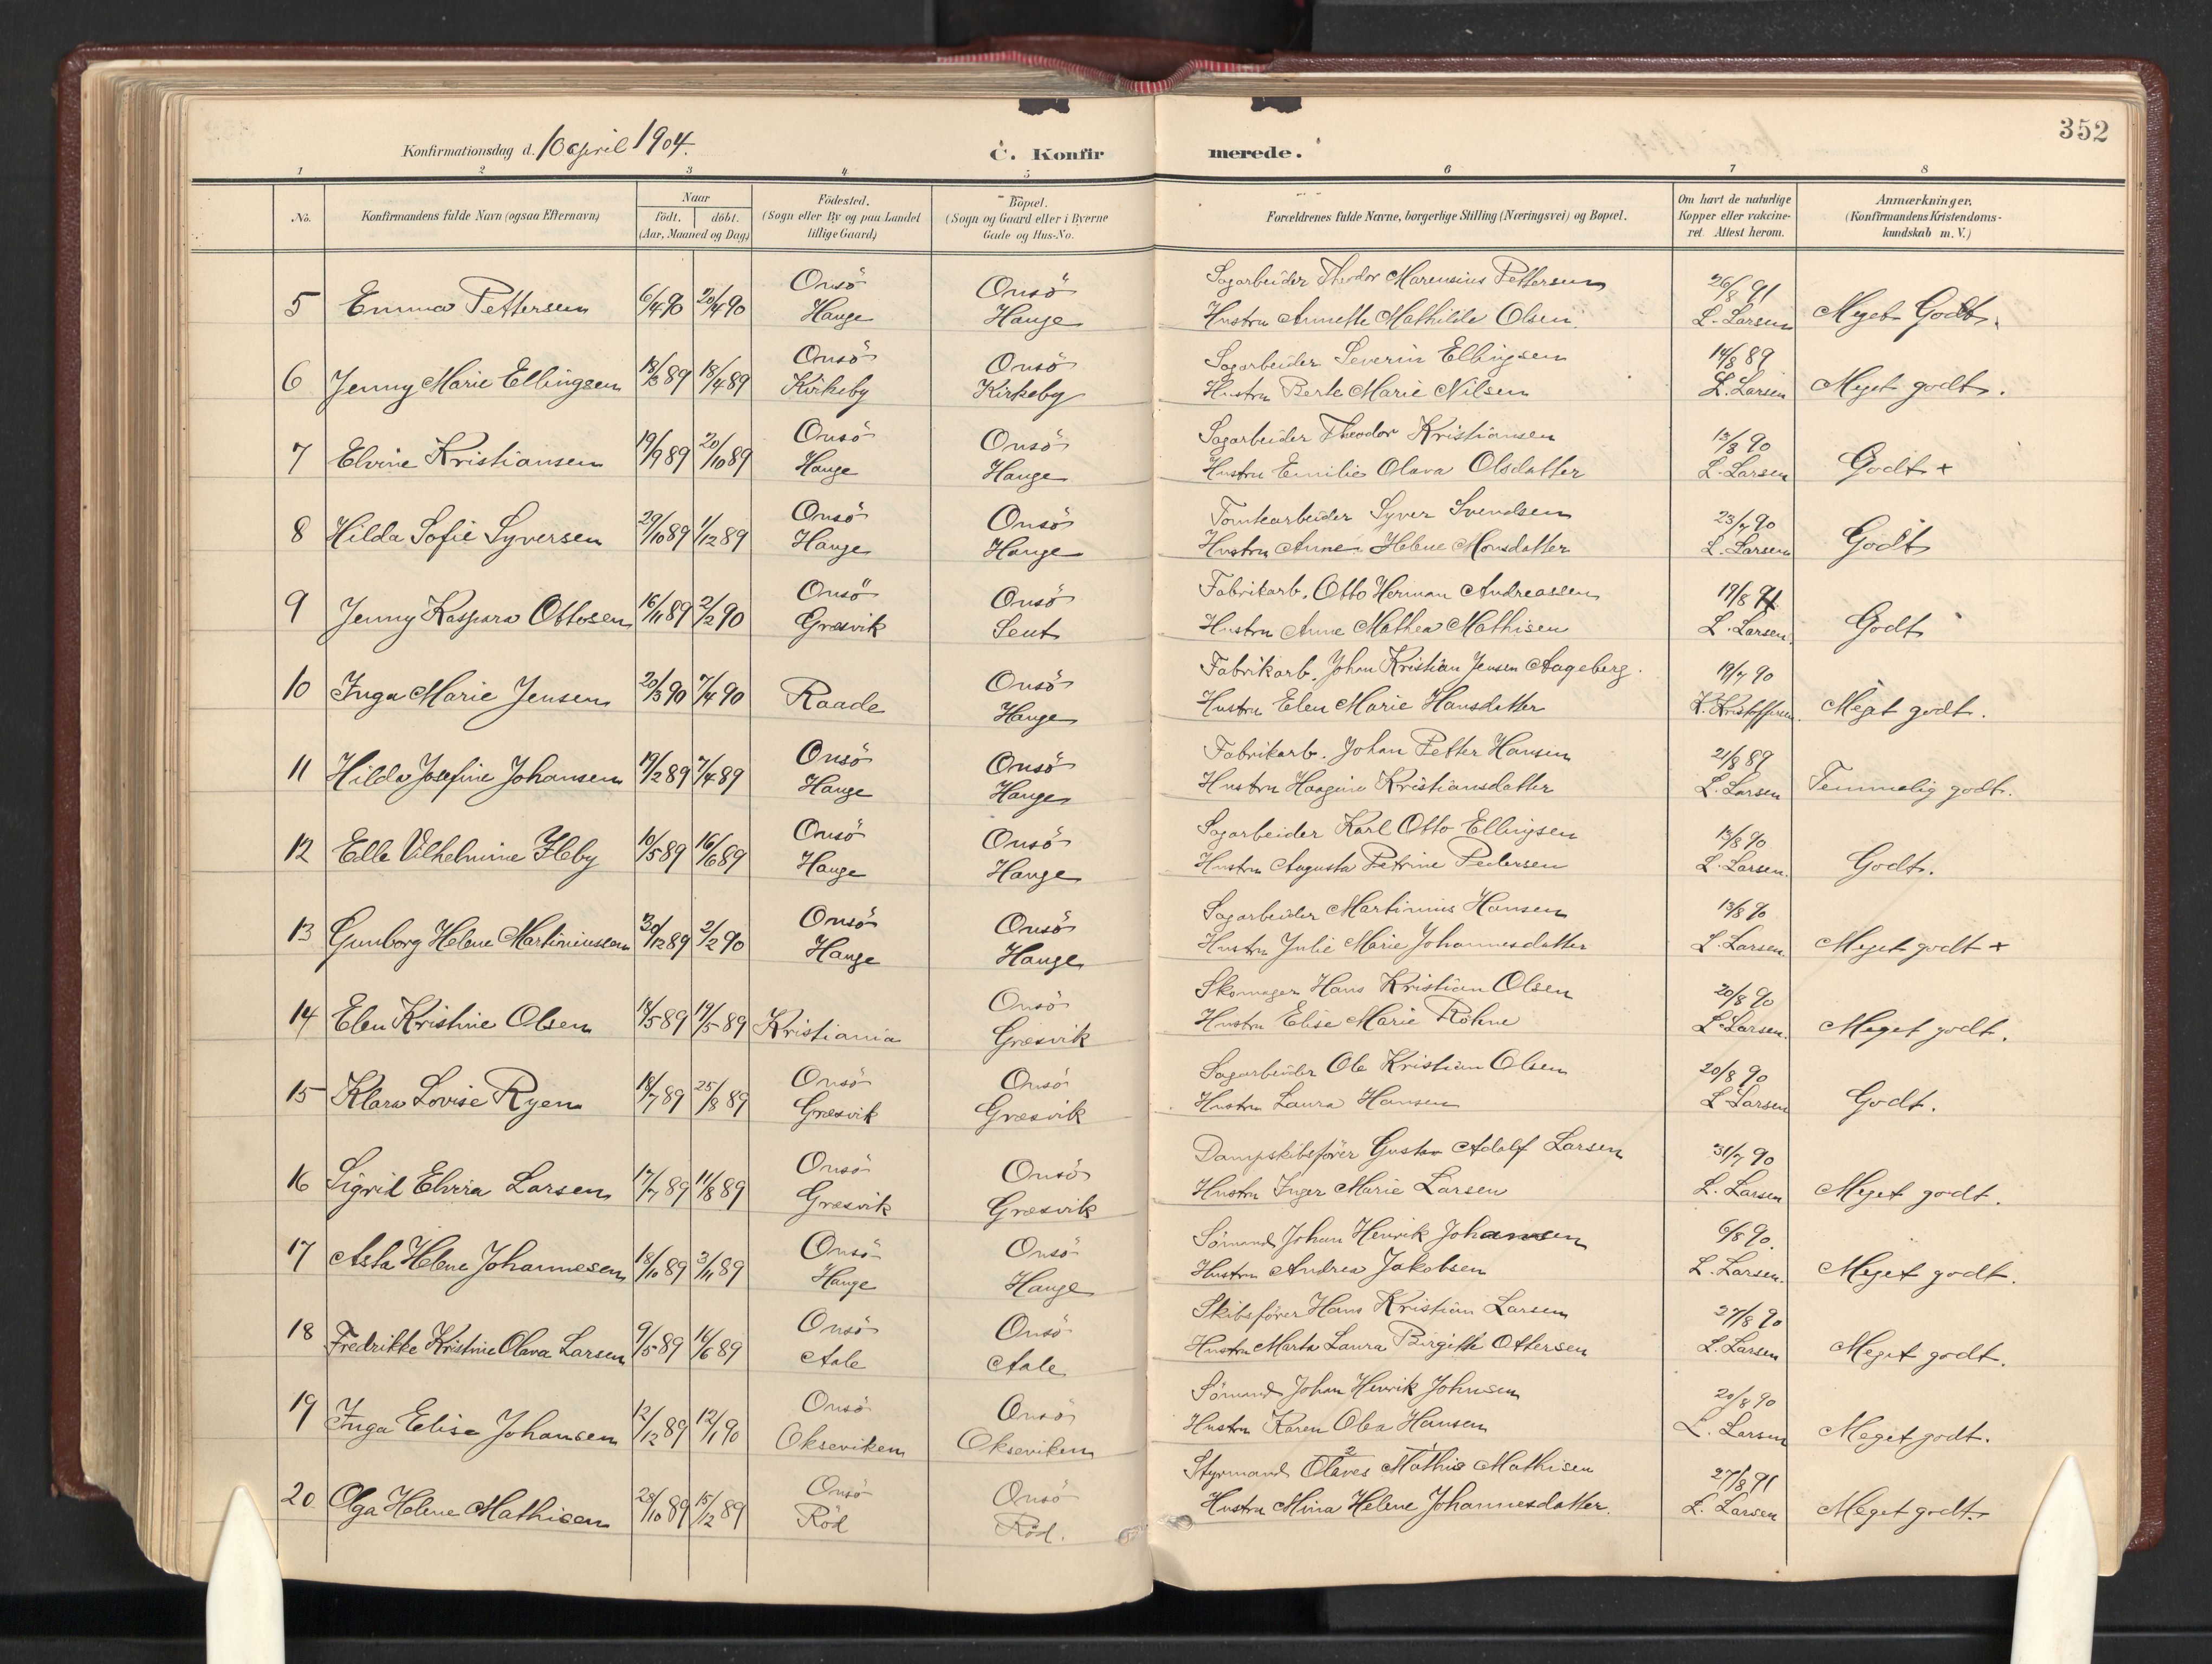 352
Konfirmationsdag d. 10 april 1904.
C. Konfirmerede.
1 2 3 4 5 6 7 8
No. Konfirmandens fulde Navn (ogsaa Efternavn) Naar födt. döbt. (Aar, Maaned og Dag) Födested. (Sogn eller By og paa Landet tillige Gaard) Bopæl. (Sogn og Gaard eller i Byerne Gade og Hus-No. Forældrenes fulde Navne, borgerlige Stilling (Næringsvei) og Bopæl. Om havt de naturlige Kopper eller vakcineret. Attest herom. Anmærkninger. (Konfirmandens Kristendomskundskab m. V.)
Onsö Onsö Sagarbeider Theodor Marensius Pettersen 26/8 91
5 Emma Pettersen 6/4 90 20/4 90 Hauge Hauge Hustru Annette Mathilde Olsen. L. Larsen Meget Godt.
Onsö Onsö Sagarbeider Severin Ellingsen 14/8 89
6 Jenny Marie Ellingsen 18/3 89 18/4 89 Kirkeby Kirkeby Hustru Berte Marie Nilsen L. Larsen Meget godt.
Onsö Onsö Sagarbeider Theodor Kristiansen 13/8 90
7 Elvine Kristiansen 19/9 89 20/10 89 Hauge Hauge Hustru Emilie Olava Olsdatter L. Larsen Godt +
Onsö Onsö Tomtearbeider Syver Svendsen 23/7 90
8 Hilda Sofie Syversen 29/10 89 1/12 89 Hauge Hauge Hustru Anne Helene Monsdatter L. Larsen Godt
Onsö Onsö Fabrikarb. Otto Herman Andreassen 19/8 91
9 Jenny Kaspara Ottosen 16/11 89 2/2 90 Græsvik Lent Hustru Anne Mathea Mathisen L. Larsen. Godt
Onsö Fabrikarb. Johan Kristian Jensen Aageberg. 19/7 90
10 Inga Marie Jensen 20/3 90 7/4 90 Raade Hauge Hustru Elen Marie Hansdatter K. Kristoffersen. Meget godt.
Onsö Onsö Fabrikarb. Johan Petter Hansen 21/8 89
11 Hilda Josefine Johansen 17/2 89 7/4 89 Hauge Hauge Hustru Haagine Kristiansdatter L. Larsen Temmelig godt.
Onsö Onsö Sagarbeider Karl Otto Ellingsen 13/8 90
12 Elle Vilhelmine Heby 10/5 89 16/6 89 Hauge Hauge Hustru Augusta Petrine Pedersen L. Larsen. Godt.
Onsö Onsö Sagarbeider Martinius Hansen 13/8 90
13 Gunborg Helene Martiniussen 30/12 89 2/2 90 Hauge Hauge Hustru Julie Marie Johannesdatter L. Larsen Meget godt +
Onsö Skomager Hans Kristian Olsen 20/8 90
14 Elen Kristine Olsen 18/5 89 19/5 89 Kristiania Græsvik Hustru Elise Marie Röhne L. Larsen. Meget godt.
Onsö Onsö Sagarbeider Ole Kristian Olsen 20/8 90
15 Klara Lovise Ryen 18/7 89 25/8 89 Græsvik Græsvik Hustru Laura Hansen L. Larsen Godt.
Onsö Onsö Dampskibsförer Gustav Adolf Larsen 31/7 90
16 Sigrid Elvira Larsen 17/7 89 11/8 89 Græsvik Græsvik Hustru Inger Marie Larsen L. Larsen Meget godt.
Onsö Onsö Sömand Johan Henrik Johansen 6/8 90.
17 Asta Helene Johannesen 18/10 89 3/11 89 Hauge Hauge Hustru Andrea Jakobsen L. Larsen. Meget godt.
Onsö Onsö Skibsförer Hans Kristian Larsen 27/8 90
18 Fredrikke Kristine Olava Larsen 9/5 89 16/6 89 Aale Aale Hustru Marta Laura Birgitte Ottersen L. Larsen Meget godt.
Onsö Onsö Sömand Johan Henrik Johnsen 20/8 90
19 Inga Elise Johansen 12/12 89 12/1 90 Oksevikem Oksevikem Hustru Karen Olea Hansen L. Larsen Meget godt.
Onsö Onsö Styrmand Olaves 2 Mathis 1 Mathisen 27/8 91
20 Olga Helene Mathisen 28/10 89 15/12 89 Röd Röd. Hustru Mina Helene Johannesdatter. L. Larsen Meget godt.